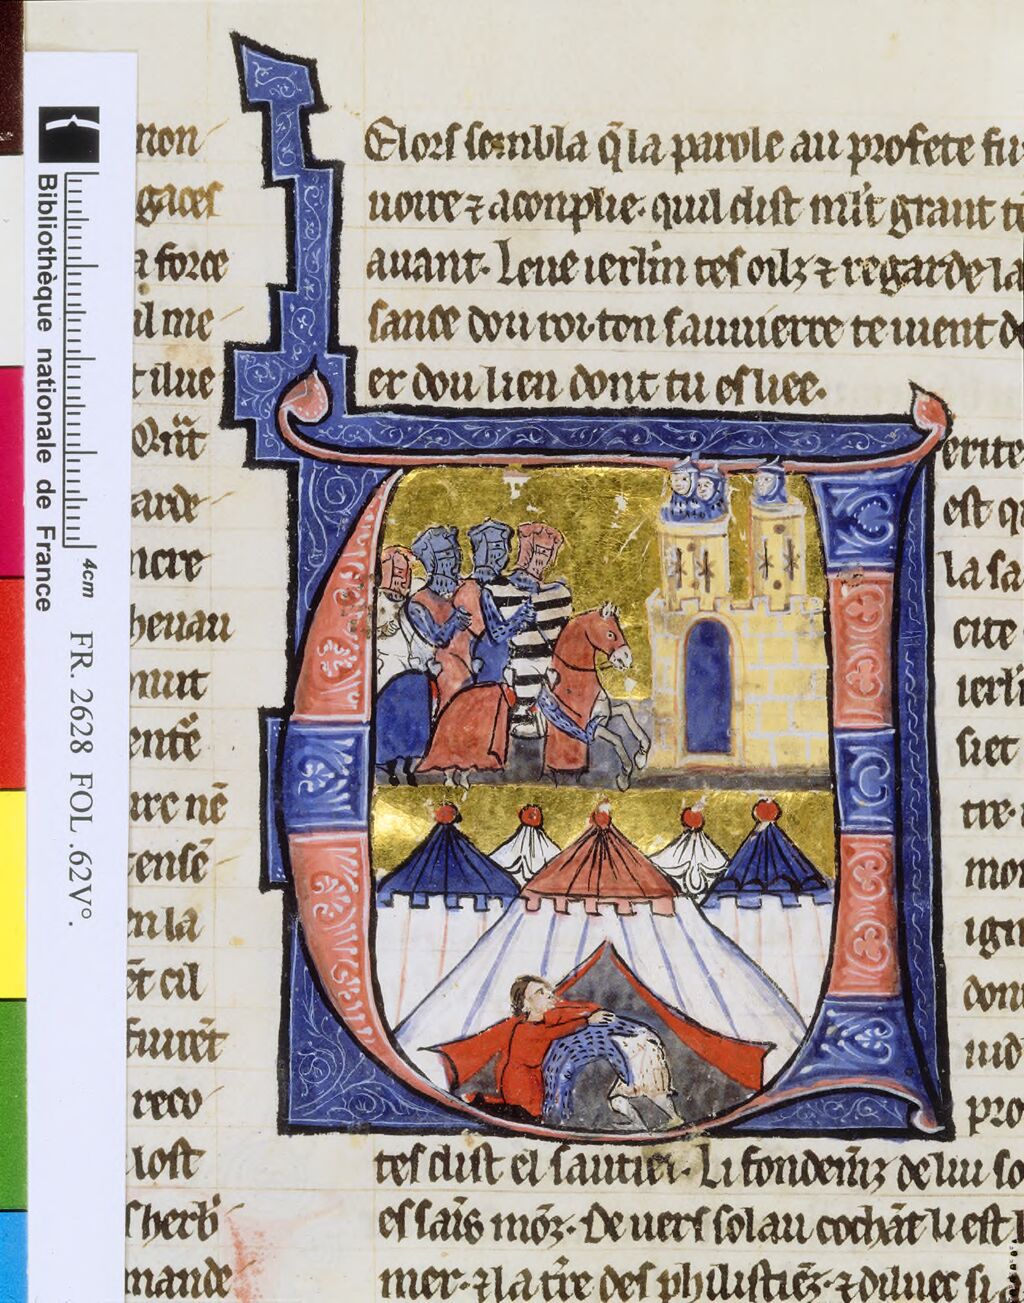 Bibliothèque nationale de France
4cm
FR. 2628 FOL .62V°.
mon
gaces
a force
il me
t ilue
Qnt
arde
ncre
heuau
nuit
ente
ure nē
tensē
en la
et cil
furēt
reco
lost
sherb
mande
Elors sembla q̄ la parole au profete fu
uoire ⁊ aconplie. quil dist mlt grant te
auant. Leue ierlm tes oilz ⁊ regarde la
sance dou roi. ton sauuierre te uient de
er dou lien dont tu es liee.
erite
est q
la sa
cite
ierl
siet
tre
mon
ign
don
iud
pro
tes dist el sautier. Li fondemz de lui so
es sais moz. Deuers solau cochāt li est l
mer. ⁊ la tre des philistiez. ⁊ diluec si a